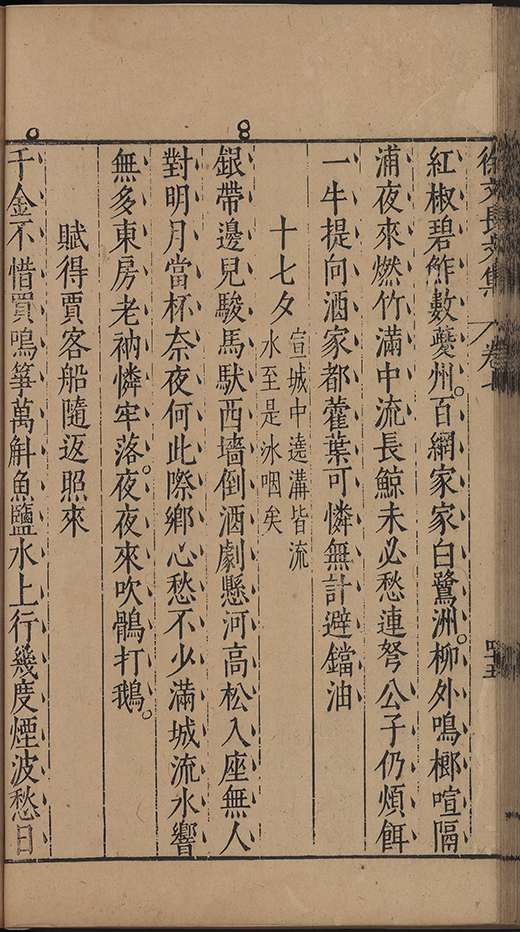 徐文長文集 卷七 四五
紅椒碧鮓數夔州。百網家家白鷺洲。柳外鳴榔喧隔
浦夜來燃竹滿中流長鯨未必愁連弩公子仍煩餌
一牛提向酒家都藿葉可憐無計避鐺油
十七夕 宣城中遶溝皆流
水至是氷咽矣
銀帶邊兒駿馬馱西墻倒酒劇懸河高松入座無人
對明月當杯奈夜何此際鄉心愁不少滿城流水響
無多東房老衲憐牢落。夜夜來吹鶻打鵝。
賦得賈客船隨返照來
千金不惜買鳴箏萬斛魚鹽水上行幾度煙波愁日